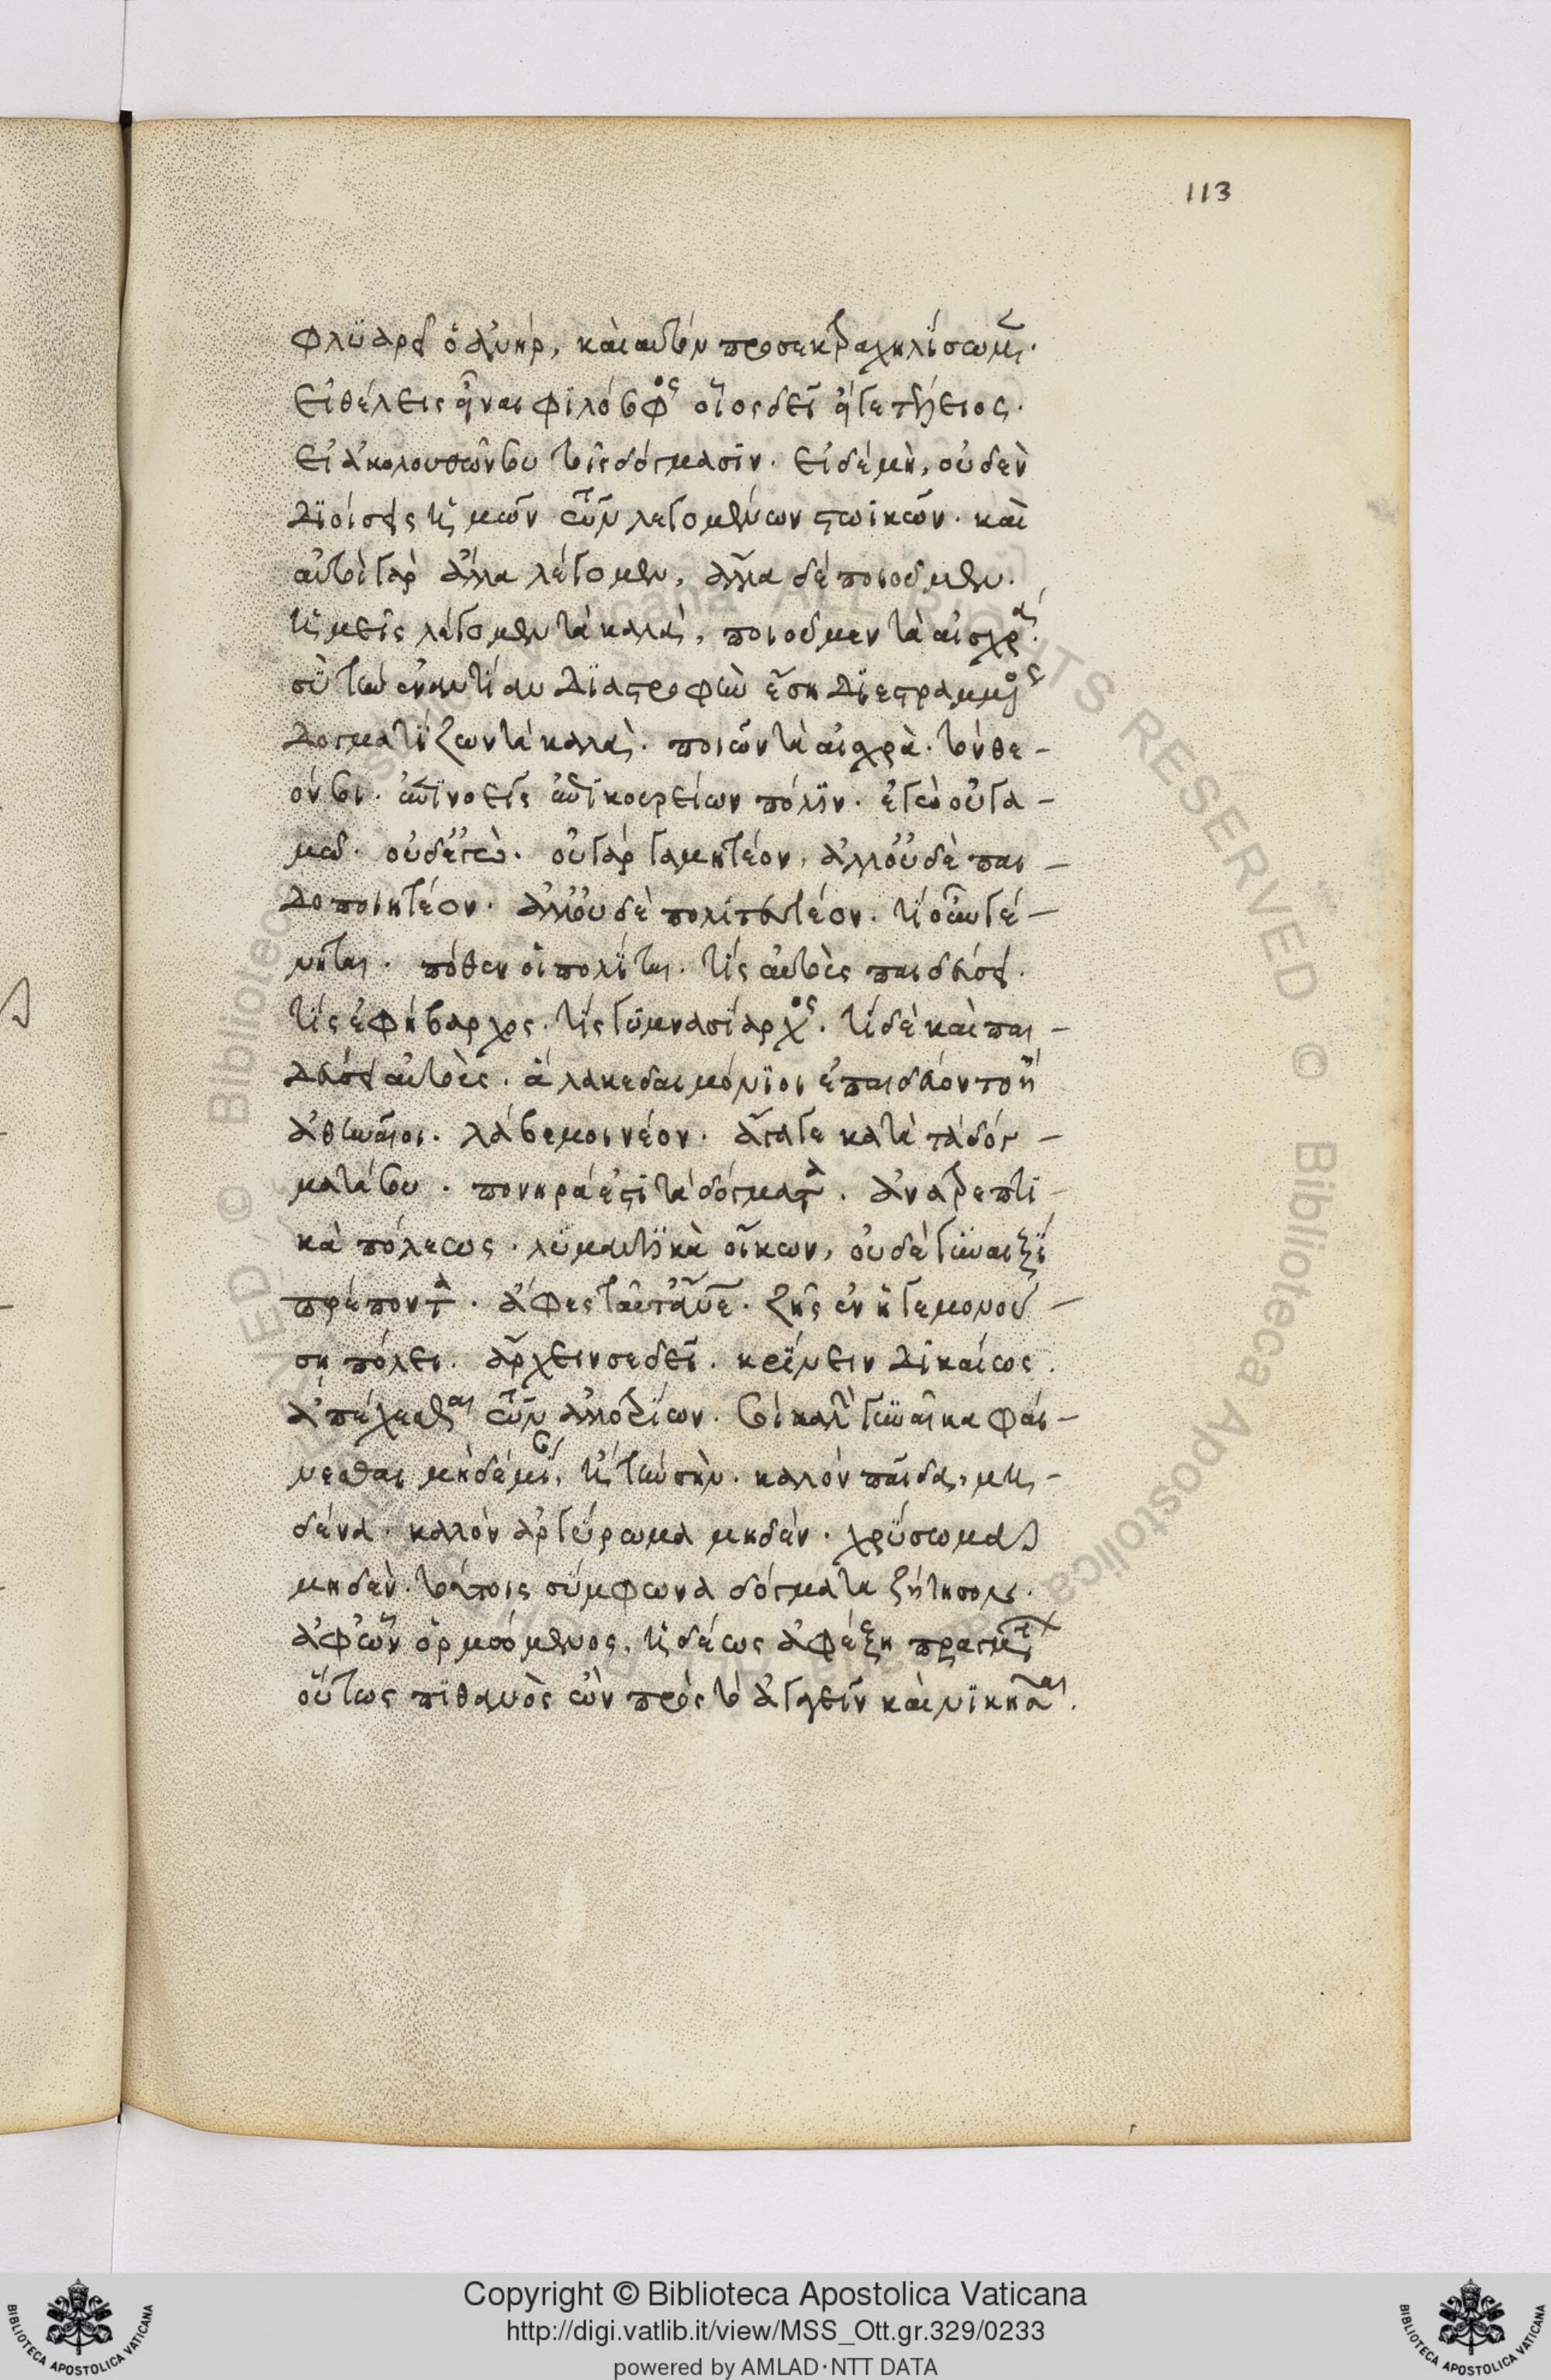 113
φλϋαρεῖ ὁ ἀνήρ, καὶ αὐτὸν προσεκτραχηλΐσωμεν.
Εἰ θέλεις εἶναι φϊλόσοφος οἷος δεῖ εἴγε τέλειος.
Εἰ ἀκολουθῶν σου τοῖς δόγμασϊν. Εἰ δὲ μὴ, οὐδὲν
διοίσεις ἡμῶν τῶν λεγομένων στωϊκῶν. καὶ
αὐτοὶ γὰρ ἄλλα λέγομεν, ἄλλα δὲ ποιοῦμεν.
ἡμεῖς λέγομεν τὰ καλὰ, ποιοῦμεν τὰ αἰσχρά.
σὺ τὴν ἐναντίαν διαστροφὴν ἔση διεστραμμένος
δογματίζων τὰ καλὰ. ποιῶν τὰ αἰσχρὰ. τὸν θε-
όν σοι. ἐπϊνοεῖς ἐπϊκουρείων πόλϊν. ἐγὼ οὐ γα-
μῶ. οὐδ' ἐγὼ. οὐ γὰρ γαμητέον, ἀλλ' οὐδὲ παι-
δοποιητέον. ἀλλ' οὐδὲ πολιτευτέον. τί οὖν γέ-
νηται. πόθεν οἱ πολῖται. τίς αὐτοὺς παιδεύσει.
τίς ἐφήβαρχος. τίς γϋμνασΐαρχος. τί δὲ καὶ παι-
δεύσει αὐτοὺς. ἃ λακεδαιμόνϊοι ἐπαιδεύοντο ἢ
ἀθηναῖοι. λάβε μοι νέον. ἄγαγε κατὰ τὰ δόγ-
ματά σου. πονηρά ἐστϊ τὰ δόγματα. ἀνατρεπτι-
κὰ πόλεως. λϋμαντϊκὰ οἴκων, οὐδὲ γϋναιξΐ
πρέποντα. ἄφες ταῦτ' ἄνθρωπε. ζῇς ἐν ἡγεμονού-
ση πόλει. ἄρχειν σε δεῖ. κρΐνειν δικαίως.
ἀπέχεσθαι τῶν ἀλλοτρΐων. σοὶ καλὴ γϋναῖκα φαί-
νεσθαι μηδεμία, ἢ τὴν σήν. καλὸν παῖδα, μη-
δένα. καλὸν ἀργΰρωμα μηδὲν. χρΰσωμα
μηδὲν. τούτοις σΰμφωνα δόγματα ζήτησον.
ἀφ' ὧν ὁρμώμενος, ἡδέως ἀφέξη πραγμάτων
οὕτως πϊθανὸς ὢν πρὸς τὸ ἀγαγεῖν καὶ νϊκῆσαι.
RESERVED © Biblioteca Apostolica
Copyright © Biblioteca Apostolica Vaticana
http://digi.vatlib.it/view/MSS_Ott.gr.329/0233
powered by AMLAD·NTT DATA
BIBLIOTECA APOSTOLICA VATICANA
BIBLIOTECA APOSTOLICA VATICANA